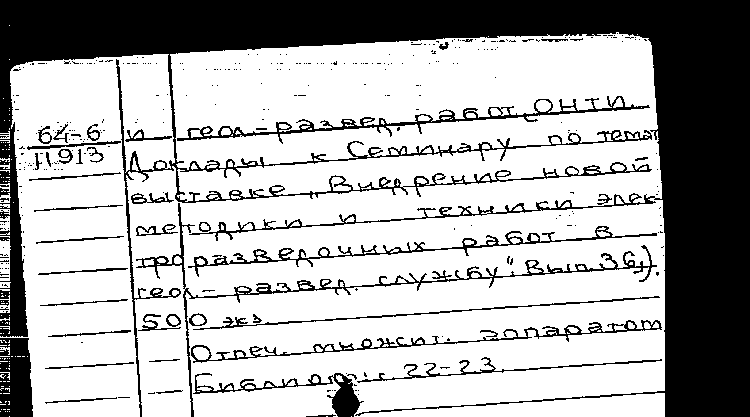 64-6
11913
и геол-развед. работ. ОНТИ.
Доклады к Семинару по темат
выставке „Внедрение новой
методики и техники элек-
троразведочных работ в
геол-развед. службу". Вып. 36,).
500 экз.
Отпеч. множит. аппаратом
Библиогр: с. 22-23.